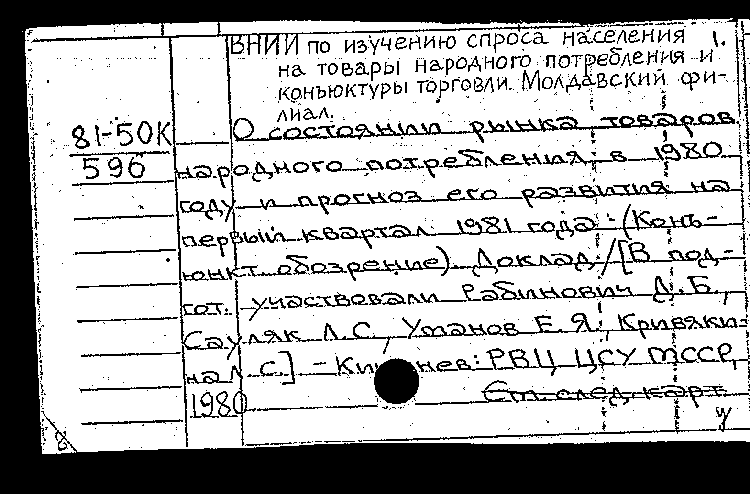 ВНИИ по изучению спроса населения 1.
на товары народного потребления и
конъюктуры торговли. Молдавский фи-
лиал.
81-50К О состоянии рынка товаров
596 народного потребления в 1980
году и прогноз его развития на
первый квартал 1981 года : (Конъ-
юнкт. обозрение). Доклад / [В под-
гот. участвовали Рабинович Д.Б.,
Сауляк Л.С., Уманов Е.Я., Кривяки-
на Л.С.] - Кишинев: РВЦ ЦСУ МССР,
1980 См. след. карт.
у
8